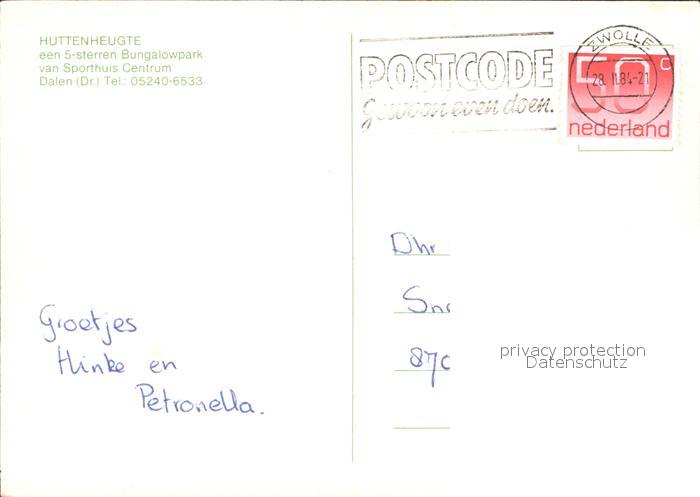 HUTTENHEUGTE
een 5-sterren Bungalowpark
van Sporthuis Centrum
Dalen (Dr.) Tel.: 05240-6533
POSTCODE
gewoon even doen.
ZWOLLE
28.II.84-21
50 C
nederland
Dhr
Snr
870
privacy protection
Datenschutz
Groetjes
Hinke en
Petronella.